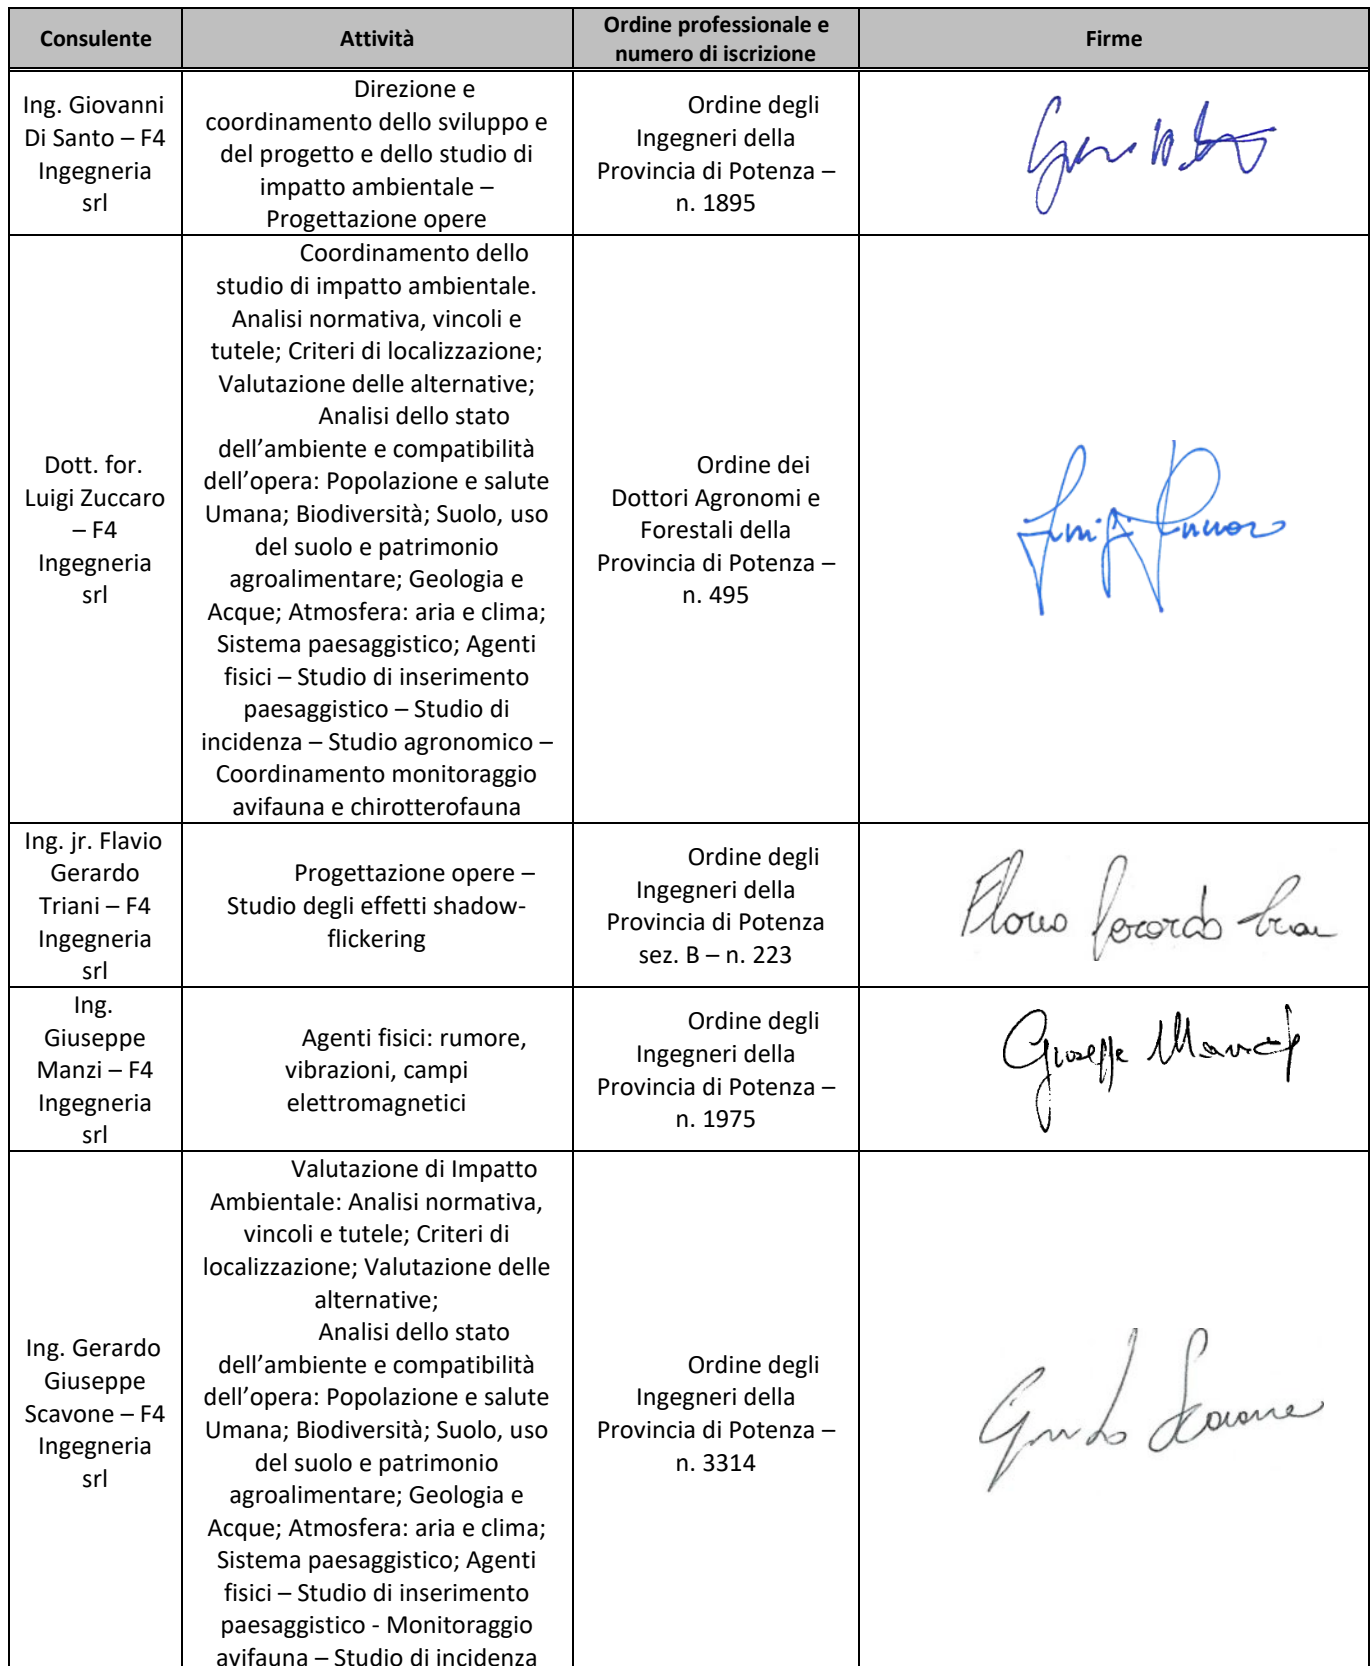 Consulente
Attività
Ordine professionale e
numero di iscrizione
Firme
Ing. Giovanni
Di Santo – F4
Ingegneria
srl
Direzione e
coordinamento dello sviluppo e
del progetto e dello studio di
impatto ambientale –
Progettazione opere
Ordine degli
Ingegneri della
Provincia di Potenza –
n. 1895
Dott. for.
Luigi Zuccaro
– F4
Ingegneria
srl
Coordinamento dello
studio di impatto ambientale.
Analisi normativa, vincoli e
tutele; Criteri di localizzazione;
Valutazione delle alternative;
Analisi dello stato
dell’ambiente e compatibilità
dell’opera: Popolazione e salute
Umana; Biodiversità; Suolo, uso
del suolo e patrimonio
agroalimentare; Geologia e
Acque; Atmosfera: aria e clima;
Sistema paesaggistico; Agenti
fisici – Studio di inserimento
paesaggistico – Studio di
incidenza – Studio agronomico –
Coordinamento monitoraggio
avifauna e chirotterofauna
Ordine dei
Dottori Agronomi e
Forestali della
Provincia di Potenza –
n. 495
Ing. jr. Flavio
Gerardo
Triani – F4
Ingegneria
srl
Progettazione opere –
Studio degli effetti shadow-
flickering
Ordine degli
Ingegneri della
Provincia di Potenza
sez. B – n. 223
Ing.
Giuseppe
Manzi – F4
Ingegneria
srl
Agenti fisici: rumore,
vibrazioni, campi
elettromagnetici
Ordine degli
Ingegneri della
Provincia di Potenza –
n. 1975
Giuseppe Manzi
Ing. Gerardo
Giuseppe
Scavone – F4
Ingegneria
srl
Valutazione di Impatto
Ambientale: Analisi normativa,
vincoli e tutele; Criteri di
localizzazione; Valutazione delle
alternative;
Analisi dello stato
dell’ambiente e compatibilità
dell’opera: Popolazione e salute
Umana; Biodiversità; Suolo, uso
del suolo e patrimonio
agroalimentare; Geologia e
Acque; Atmosfera: aria e clima;
Sistema paesaggistico; Agenti
fisici – Studio di inserimento
paesaggistico - Monitoraggio
avifauna – Studio di incidenza
Ordine degli
Ingegneri della
Provincia di Potenza –
n. 3314